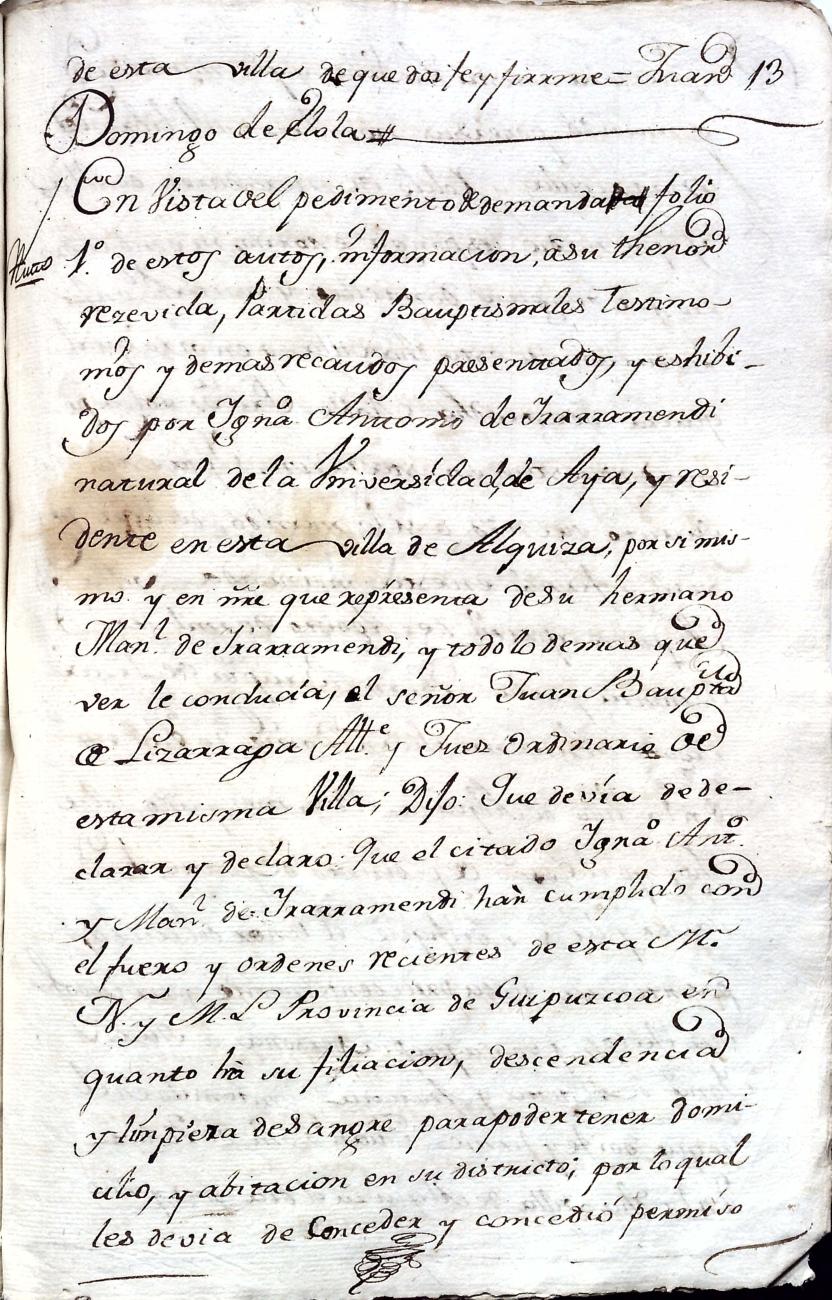 de esta villa de que doi fe y firrme = Juan 13
Domingo de Elola #
En Vista del pedimento de demanda folio
Auto 1.º de estos autos, informacion, â su thenor
rezevida, Partidas Bauptismales Testimo-
nios y demas recaudos presentados, y eshibi-
dos por Ignª Antonio de Irarramendi
natural de la Vniversidad, de Aya, y resi-
dente en esta villa de Alquiza, por si mis-
mo y en nre que representa de su hermano
Manl. de Irarramendi, y todo lo demas que
ver le conducía, el señor Juan Baupta
de Lizarraga Alle y Juez Ordinario de
esta misma Villa; Dijo: Que devía de de-
clarar y declaro: Que el citado Ignº Antº
y Manl de Irarramendi han cumplido con
el fuero y ordenes recientes de esta M.
N. y M. L Provincia de Guipuzcoa en
quanto hà su filiacion, descendencia
y limpieza de Sangre para poder tener domi-
cilio, y abitacion en su districto; por lo qual
les devia de Conceder y concedió permiso